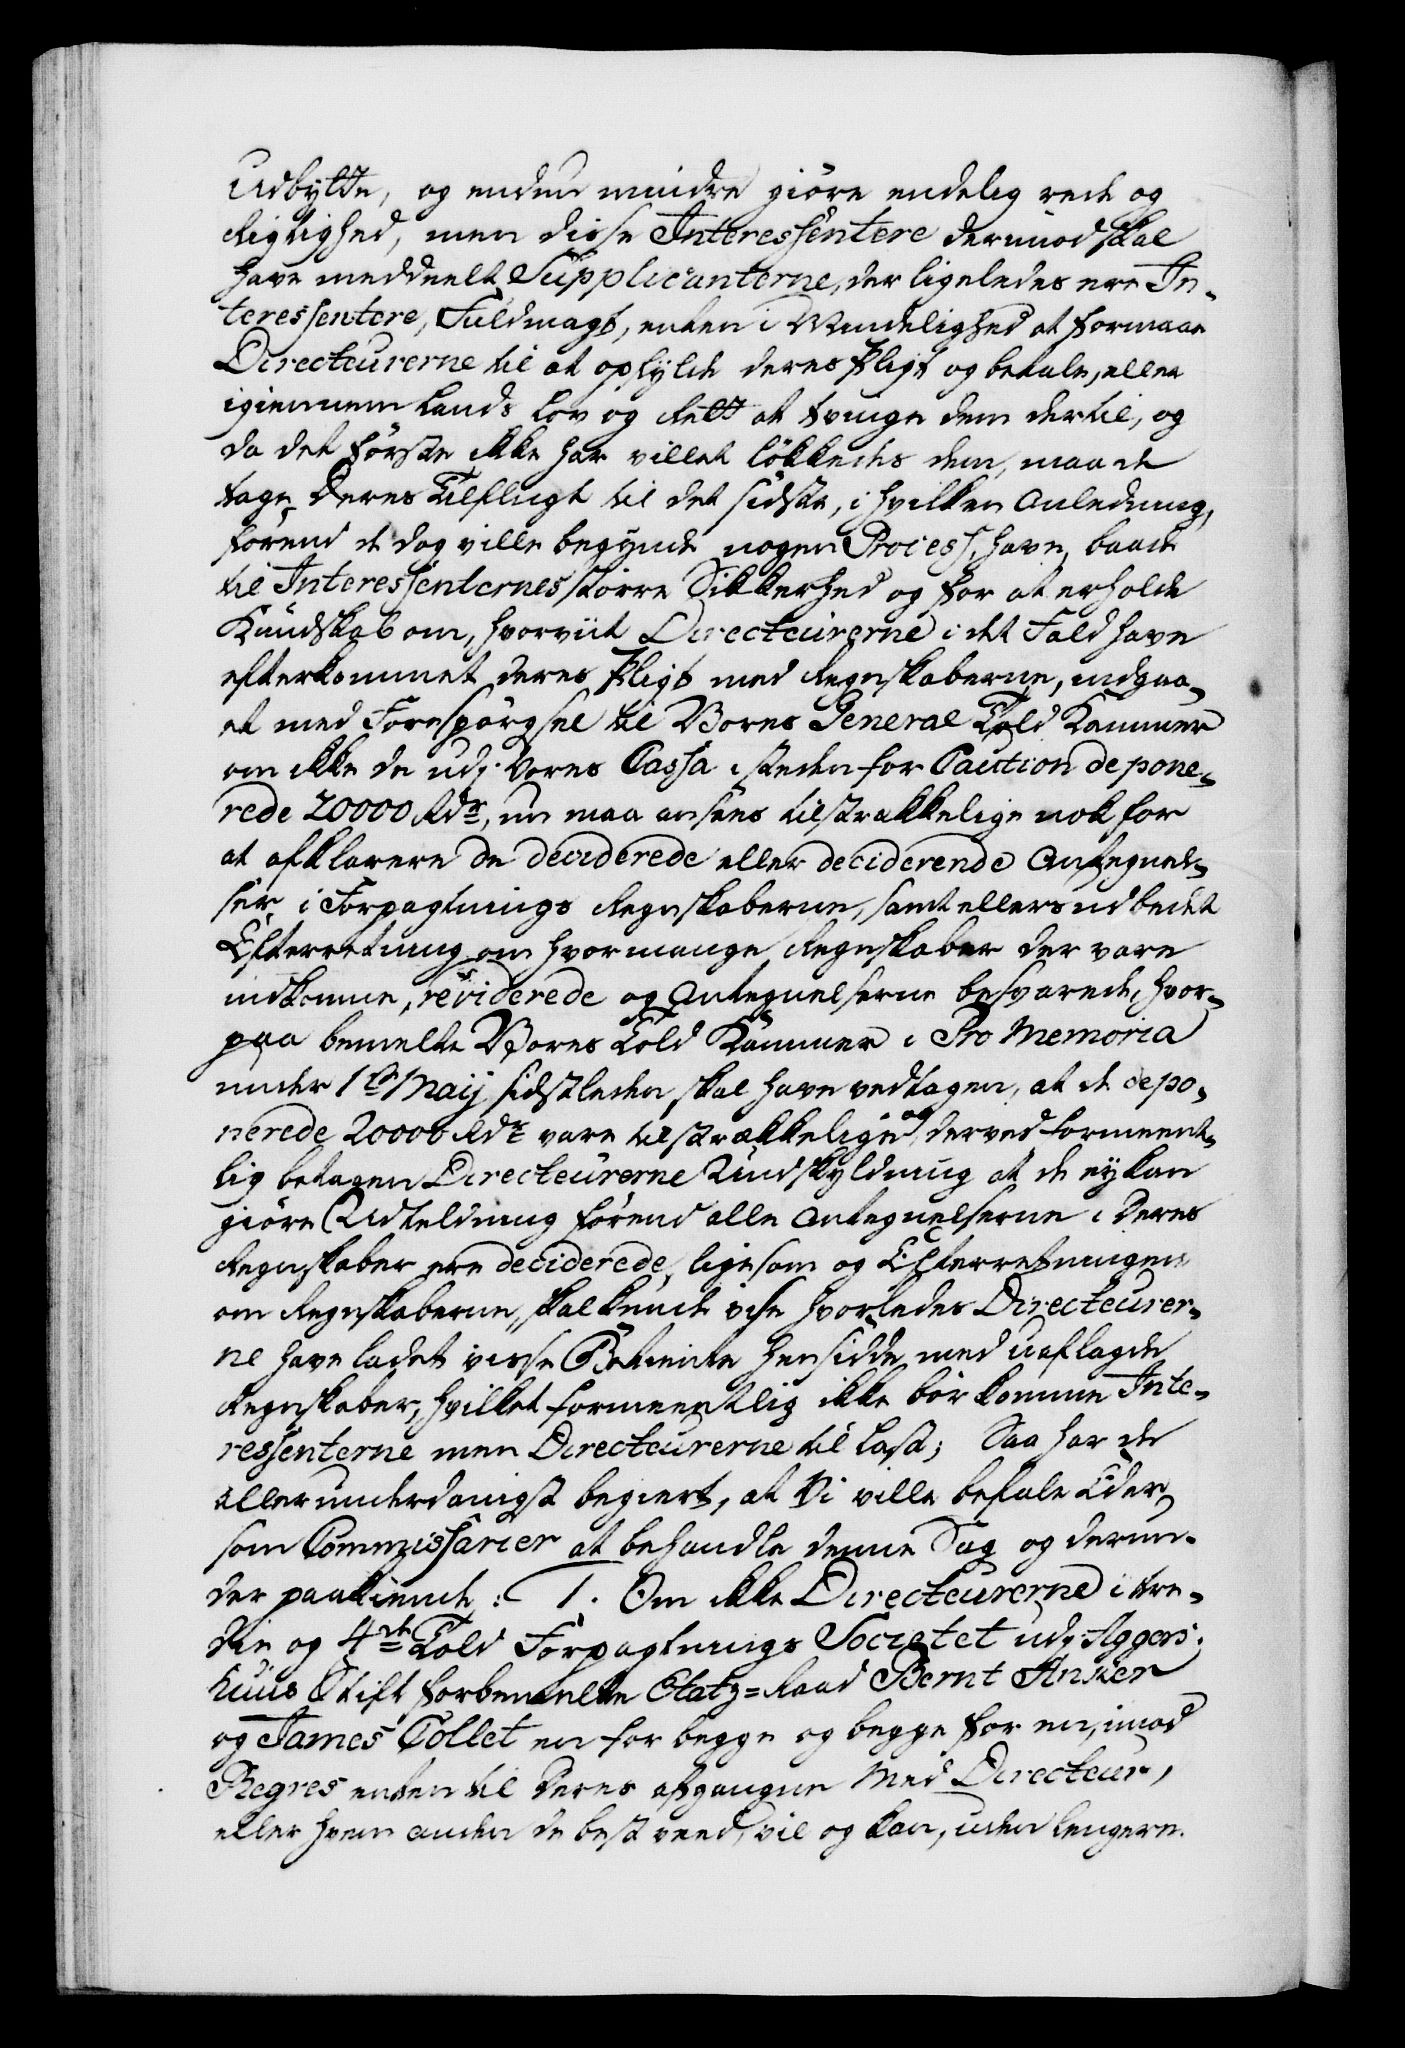 Udbytte, og endnu mindre giöre endelig rede og
Rigtighed, men disse Interessentere derimod skal
have meddeelt Supplicanterne, der ligeledes ere In-
teressentere, Fuldmagt, enten i Mindelighed at formaae
Directeurerne til at opfylde deres Pligt og betale, eller
igiennem Lands Lov og Rett at tvinge dem dertil, og
da det förste ikke har villet lökkedes dem, maa de
tage Deres Tilflugt til det sidste, i hvilken Anledning,
förend de dog ville begynde nogen Process, have, baade
til Interessenternes större Sikkerhed og for at erholde
Kundskab om, hvorviit Directeurerne i det Fald have
efterkommet deres Pligt med Regnskaberne, indgaa-
et med Forespörgsel til Vores General Told Kammer
om ikke de udj Vores Cassa i steden for Caution depone-
rede 20000 Rdr, nu maa ansees tilstrækkelige nok for
at afklarere de deciderede eller deciderende Antegnel-
ser i Forpagtnings Regnskaberne, samt ellers udbedet
Efterretning om hvormange Regnskaber der vare
indkomne, reviderede og Antegnelserne besvarede, hvor-
paa bemelte Vores Told Kammer i Pro Memoria
under 1te Maij sidstleden skal have vedtagen, at de depo-
nerede 20000 Rdr vare tilstrækkelige og derved formeent-
lig betagen Directeurerne Undskyldning at de ey kan
giöre Uddeldning förend alle Antegnelserne i Deres
Regnskaber ere deciderede, ligesom og Efterretningen
om Regnskaberne, skal kunde vise hvorledes Directeurer-
ne have ladet visse Betiente hensidde med uaflagde
Regnskaber, hvilket formeentlig ikke bör komme Inte-
ressenterne men Directeurerne til Last; Saa har de
allerunderdanigst begiert, at Vi ville befale Eder
som Commissarier at behandle denne Sag og derun-
der paakiende: 1. Om ikke Directeurerne i tre-
die og 4de Told Forpagtnings Societet udj Aggers-
huus Stift forbemelte Etatz-Raad Bernt Anker
og James Collet en for begge og begge for en, imod
Regres enten til Deres afgangne Med Directeur,
eller hvem anden de best veed, vil og kan, uden lengere